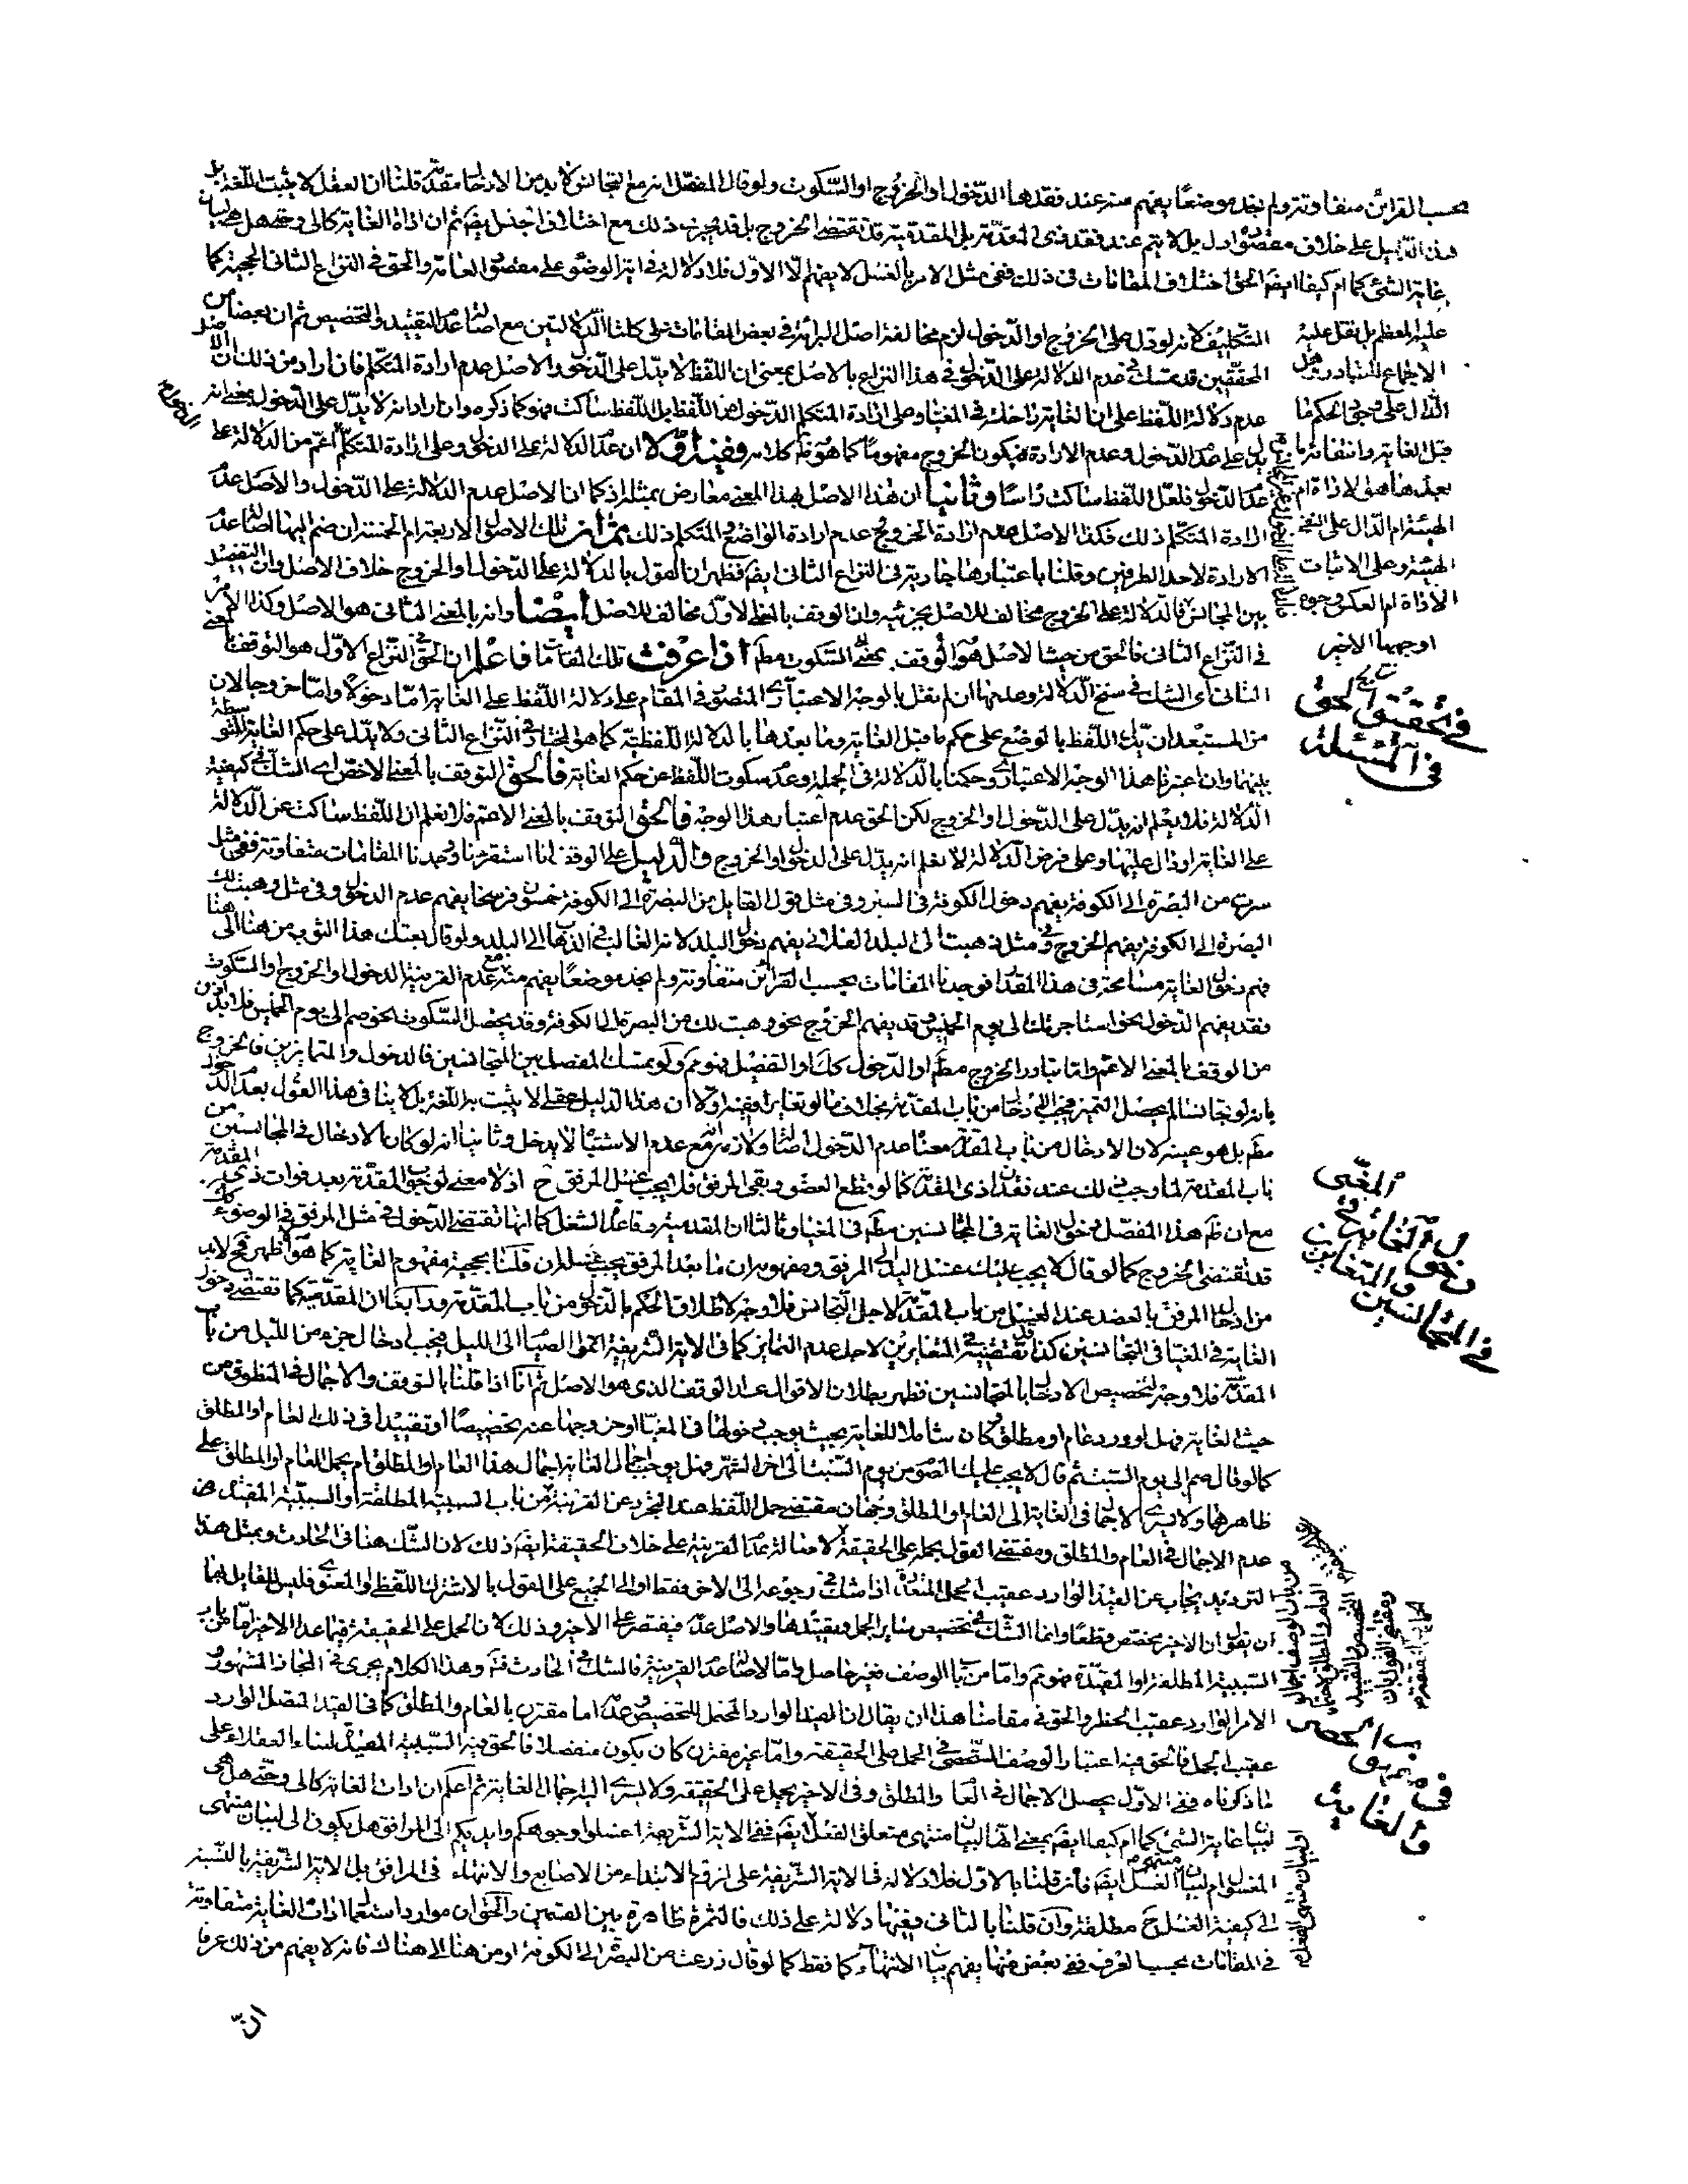 بحسب القرائن متفاوتة ولم نجد موضعًا يفهم منه عند فقدها الدّخول او الخروج او السّكوت ولو قال المفصّل انه مع التجانس لا بد من الادخال مقدمة قلنا ان العقل لا يثبت اللّغة بل
هذا الدّليل على خلاف مقصوده ادل بل لا يتم عند فقد ذى المقدّمة بل المقدمية قد تقتضى الخروج بل قد يجرى ذلك مع اختلاف الجنس ايضا ثم ان اداة الغاية كالى وحتى هل هى لبيان
غاية الشئ كما ام كيفا ايضا الحق اختلاف المقامات فى ذلك ففى مثل الامر بالغسل لا يفهم الّا الاوّل فلا دلالة فى اية الوضوء على مقصود العامة والحق فى النزاع الثانى الحجية كما
عليه المعظم بل نقل عليه
الاجماع للتبادر
الدّال على وجوب الحكم
قبل الغاية وانتفائه
بعدها هو الاداة ام
الهيئة ام الدّال على النفى
الهيئة وعلى الاثبات
الاداة ام العكس وجوه
اوجهها الاخير
التكليف لانه لو دل على الخروج او الدّخول لزم مخالفة اصل البرائة فى بعض المقامات على كلتا الدّلالتين مع اصالة عدم التقييد والتخصيص ثم ان بعضا من
المحقّقين قد تمسك فى عدم الدلالة على الدّخول فى هذا النزاع بالاصل بمعنى ان اللّفظ لا يدّل على الدّخول والاصل عدم ارادة المتكلم فان اراد من ذلك ان الاصل
عدم دلالة اللّفظ على ان الغاية داخلة فى المغيا وعلى ارادة المتكلم الدّخول من اللّفظ بل اللّفظ ساكت فهو كما ذكره وان اراد انه لا يدّل على الدّخول بمعنى انه
يدل على عدم الدّخول وعدم الارادة فيكون الخروج مفهومًا كما هو ظ كلامه ففيه اوّلا ان عدم الدلالة على الدخول وعلى ارادة المتكلّم اعّم من الدلالة على
عدم الدّخول فلعل اللّفظ ساكت رأسًا وثانيا ان هذا الاصل بهذا المعنى معارض بمثله اذ كما ان الاصل عدم الدلالة على الدّخول والاصل عدم
ارادة المتكلّم ذلك فكذا الاصل عدم ارادة الخروج عدم ارادة الواضع والمتكلم ذلك ثم ان تلك الاصول الاربعة ام الخمسة ان ضم اليها اصالة عدم
الارادة لاحد الطرفين وقلنا باعتبارها جارية فى النزاع الثانى ايضا فظهر ان القول بالدلالة على الدّخول او الخروج خلاف الاصل وان التفصيل
بين المجانس فالدّلالة على الخروج مخالف للاصل بجزئيه وان الوقف بالمعنى الاوّل مخالف للاصل ايضا وانه بالمعنى الثانى هو الاصل وكذا الامر
فى النّزاع الثانى فالحق من حيث الاصل هو الوقف بمعنى السّكوت مط اذا عرفت تلك المقامات فاعلم ان الحق فى النّزاع الاوّل هو التوقف بالمعنى
الثانى اى الشك فى سنخ الدّلالة وعدمها ان لم نقل بالوجه الاعتبارى المتصوّر فى المقام على دلالة اللّفظ على الغاية امّا دخولا وامّا خروجا لان
من المستبعد ان يدّل اللّفظ بالوضع على حكم ما قبل الغاية وما بعدها بالدلالة اللّفظية كما هو المختار فى النّزاع الثانى ولا يدّل على حكم الغاية المتوسطة
بينهما وان اعتبرنا هذا الوجه الاعتبارى وحكمنا بالدّلالة فى الجملة وعدم سكوت اللّفظ عن حكم الغاية فالحق التوقف بالمعنى الاخص اى الشك فى كيفية
الدّلالة فلا يعلم انه يدّل على الدّخول او الخروج لكن الحق عدم اعتبار هذا الوجه فالحق التوقف بالمعنى الاعم فلا نعلم ان اللّفظ ساكت عن الدّلالة
على الغاية او دّال عليها وعلى فرض الدّلالة لا نعلم انه يدّل على الدخول او الخروج والدليل على الوقف انا استقرئنا وجدنا المقامات متفاوتة ففى مثل
سرت من البصرة الى الكوفة يفهم دخول الكوفة فى السير وفى مثل قول القايل من البصرة الى الكوفة خمسون فرسخا يفهم عدم الدخول وفى مثل وهبت لك
البصرة الى الكوفة يفهم الخروج وفى مثل ذهبت الى البلد الفلانى يفهم دخول البلد لانه الغالب فى الذهاب الى البلد ولو قال بعتك هذا الثوب من هنا الى هنا
فهم دخول الغاية مسامحة فى هذا المقدار فوجدنا المقامات بحسب القرائن متفاوتة ولم نجد موضعًا يفهم منه مع عدم القرينة الدخول او الخروج او السكوت
فقد يفهم الدّخول نحو استاجرتك الى يوم الخميس وقد يفهم الخروج نحو وهبت لك من البصرة الى الكوفة وقد يحصل السّكوت نحو صم الى يوم الخميس فلا بد
من الوقف بالمعنى الاعم وامّا تبادر الخروج مط او الدّخول كك او التفصيل فهو مم ولو تمسك المفصل بين المتجانسين فالدخول والمتمايزين فالخروج
بانه لو تجانسا لم يحصل التميز فيجب الادخال من باب المقدمة بخلاف ما لو تغايرا ففيه اولا ان هذا الدليل عقلى لا يثبت به اللّغة بل لا ينافى هذا القول بعدم الدخول
مط بل هو عينه لان الادخال من باب المقدمة معناه عدم الدّخول اصالة ولازمه انه مع عدم الاشتباه لا يدخل وثانيا انه لو كان الادخال فى المجانسين من
باب المقدمة لما وجب ذلك عند فقدان ذى المقدمة كما لو قطع العضو وبقى المرفق فلا يجب غسل المرفق ح اذ لا معنى لوجوب المقدّمة بعد فوات ذى المقدمة
مع ان ظ هذا المفصّل دخول الغاية فى المتجانسين مط فى المغيا وثالثا ان المقدمية وقاعدة الشغل كما انها تقتضى الدّخول فى مثل المرفق فى الوضوء كك
قد تقتضى الخروج كما لو قال لا يجب عليك غسل اليد الى المرفق ومفهومه ان ما بعد المرفق يجب غسله ان قلنا بحجية مفهوم الغاية كما هو الاظهر فح لا بد
من ادخال المرفق بالعضد عند الغسل من باب المقدّمة لاجل التّجانس فلا وجه لاطلاق الحكم بالدّخول من باب المقدّمة ورابعًا ان المقدّمية كما تقتضى دخول
الغاية فى المغيا فى المتجانسين كذا قد تقتضيه فى المتغايرين لاجل عدم التمايز كما فى الاية الشريفة اتموا الصيام الى الليل فيجب ادخال جزء من الليل من باب
المقدّمة فلا وجه لتخصيص الادخال بالمتجانسين فظهر بطلان الاقوال عدا الوقف الذى هو الاصل ثم انّا اذا قلنا بالتوقف والاجمال فى المنطوق من
حيث الغاية فهل لو ورد عام او مطلق كان شاملا للغاية بحيث يوجب دخولها فى المغيا او خروجها عنه تخصيصًا او تقييدا فى ذلك العام او المطلق
كما لو قال صم الى يوم السّبت ثم قال لا يجب عليك الصّوم من يوم السّبت الى اخر الشّهر فهل يوجب اجمال الغاية اجمال هذا العام او المطلق ام يحمل العام او المطلق على
ظاهرهما ولا يسرى الاجمال فى الغاية الى العام والمطلق وجهان مقتضى حمل اللّفظ عند التجرد عن القرينة من باب السببية المطلقة او السببيّة المقيدة هو
عدم الاجمال فى العام والمطلق ومقتضى القول بحمله على الحقيقة لاصالة عدم القرينة على خلاف الحقيقة ايضا ذلك لان الشّك هنا فى الحادث وبمثل هذا
الترديد يجاب عن القيد الوارد عقيب الجمل المتعددة اذا شك فى رجوعه الى الاخير فقط او الى الجميع على القول بالاشتراك اللّفظى او المعنوى فليس للقايل بهما
ان يقول ان الاخير مختص قطعًا وانما الشّك فى تخصيص ساير الجمل وتقييدها والاصل عدمه فيقتصر على الاخير وذلك لان الحمل على الحقيقة فيما عدا الاخير امّا من باب
السّببية المطلقة او المقيّدة فهو مم وامّا من باب الوصف فغير حاصل وامّا لاصالة عدم القرينة فالشك فى الحادث فتم وهذا الكلام يجرى فى المجاز المشهور
الامر الوارد عقيب الحظر والحق فى مقامنا هذا ان يقال ان القيد الوارد المحتمل للتخصيص وعدمه اما مقترن بالعام والمطلق كما فى القيد المتصل الوارد
عقيب الجمل فالحق فيه اعتبار الوصف الشّخصى فى الحمل على الحقيقة وامّا غير مقترن كان يكون منفصلا فالحق فيه السّببية المقيدة لبناء العقلاء على
ما ذكرناه ففى الاوّل يحصل الاجمال فى العام والمطلق وفى الاخير يحمل على الحقيقة ولا يسرى اليه اجمال الغاية ثم اعلم ان ادات الغاية كالى وحتّى هل هى
لبيان غاية الشئ كما ام كيفا ايضا بمعنى انها لبيان منتهى متعلق الفعل ايضا ففى الاية الشّريفة اغسلوا وجوهكم وايديكم الى المرافق هل يكون الى لبيان منتهى
المغسول ام لبيان منتهى الغسل ايضا فان قلنا بالاول فلا دلالة فى الاية الشّريفة على لزوم الابتداء من الاصابع والانتهاء فى المرافق بل الاية الشّريفة بالنّسبة
الى كيفية الغسل ح مطلقة وان قلنا بالثانى ففيها دلالة على ذلك فالثمرة ظاهرة بين القسمين والحق ان موارد استعمال ادات الغاية متفاوتة
فى المقامات بحسب العرف ففى بعض منها يفهم بيان الانتهاء كما فقط كما لو قال زرعت من البصرة الى الكوفة او من هنا الى هناك فانه لا يفهم من ذلك عرفا
فى تحقيق الحق
فى المسئلة
دخول الغاية فى المغيى
فى المتجانسين والمتغايرين
فى مفهوم الحصر
والغاية